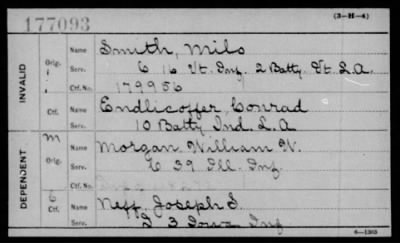 177093
(3-H-4)
INVALID
Orig. Name Smith, Milo
Serv. C 16 Vt. Inf. 2 Batty. Vt. L.A.
Ctf. No. 179956
Ctf. Name Endlicoffer, Conrad
Serv. 10 Batty Ind. L.A
DEPENDENT
M Orig. Name Morgan William W.
Serv. C 39 Ill. Inf.
Ctf. No.
C Ctf. Name Neff, Joseph S.
Serv. D 3 Iowa Inf.
6-1363